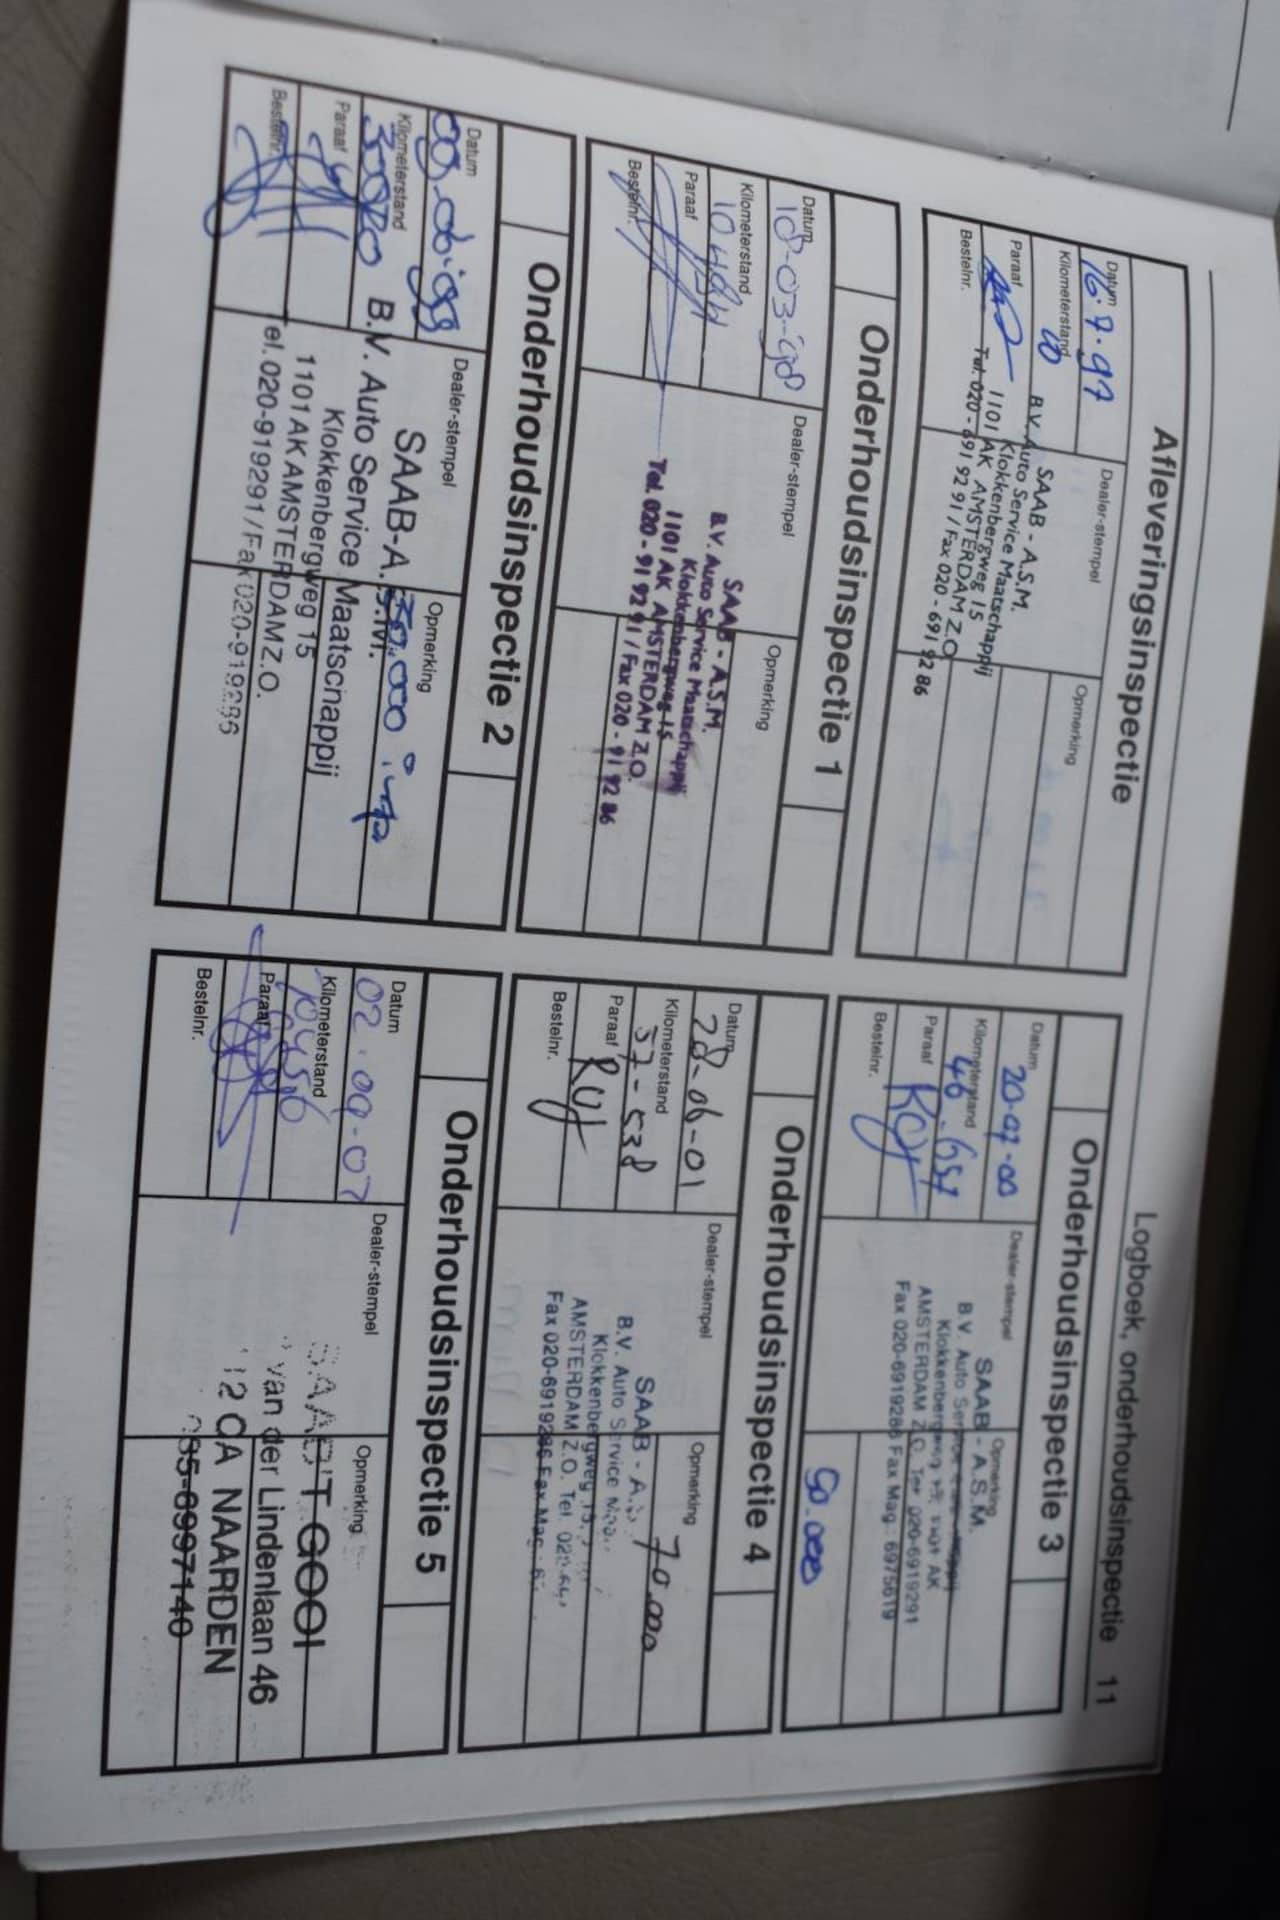 Logboek, onderhoudsinspectie 11
Afleveringsinspectie
Datum
16.7.97
Kilometerstand
Paraaf
Bestelnr.
Dealer-stempel
SAAB - A.S.M.
B.V. Auto Service Maatschappij
Klokkenbergweg 15
1101 AK AMSTERDAM Z.O.
Tel. 020 - 691 92 91 / Fax 020 - 691 92 86
Opmerking
Onderhoudsinspectie 1
Datum
18-03-98
Kilometerstand
Paraaf
Bestelnr.
Dealer-stempel
SAAB - A.S.M.
B.V. Auto Service Maatschappij
Klokkenbergweg 15
1101 AK AMSTERDAM Z.O.
Tel. 020 - 91 92 91 / Fax 020 - 91 92 86
Opmerking
Onderhoudsinspectie 2
Datum
Kilometerstand
Paraaf
Bestelnr.
Dealer-stempel
SAAB-A.S.M.
B.V. Auto Service Maatschappij
Klokkenbergweg 15
1101 AK AMSTERDAM Z.O.
Tel. 020-919291 / Fax 020-919286
Opmerking
30.000
Onderhoudsinspectie 3
Datum
20-07-00
Kilometerstand
46-657
Paraaf
Bestelnr.
Dealer-stempel
SAAB - A.S.M.
B.V. Auto
Klokkenbergweg 15, 1101 AK
AMSTERDAM Z.O. Tel. 020-6919291
Fax 020-6919286 Fax Mag.: 6975619
Opmerking
50.000
Onderhoudsinspectie 4
Datum
28-06-01
Kilometerstand
57-538
Paraaf
Bestelnr.
Dealer-stempel
SAAB - A.
B.V. Auto Service
Klokkenbergweg 15,
AMSTERDAM Z.O. Tel.
Fax 020-6919286 Fax Mag.:
Opmerking
70.000
Onderhoudsinspectie 5
Datum
Kilometerstand
Paraaf
Bestelnr.
Dealer-stempel
'T GOOI
van der Lindenlaan 46
CA NAARDEN
6997140
Opmerking